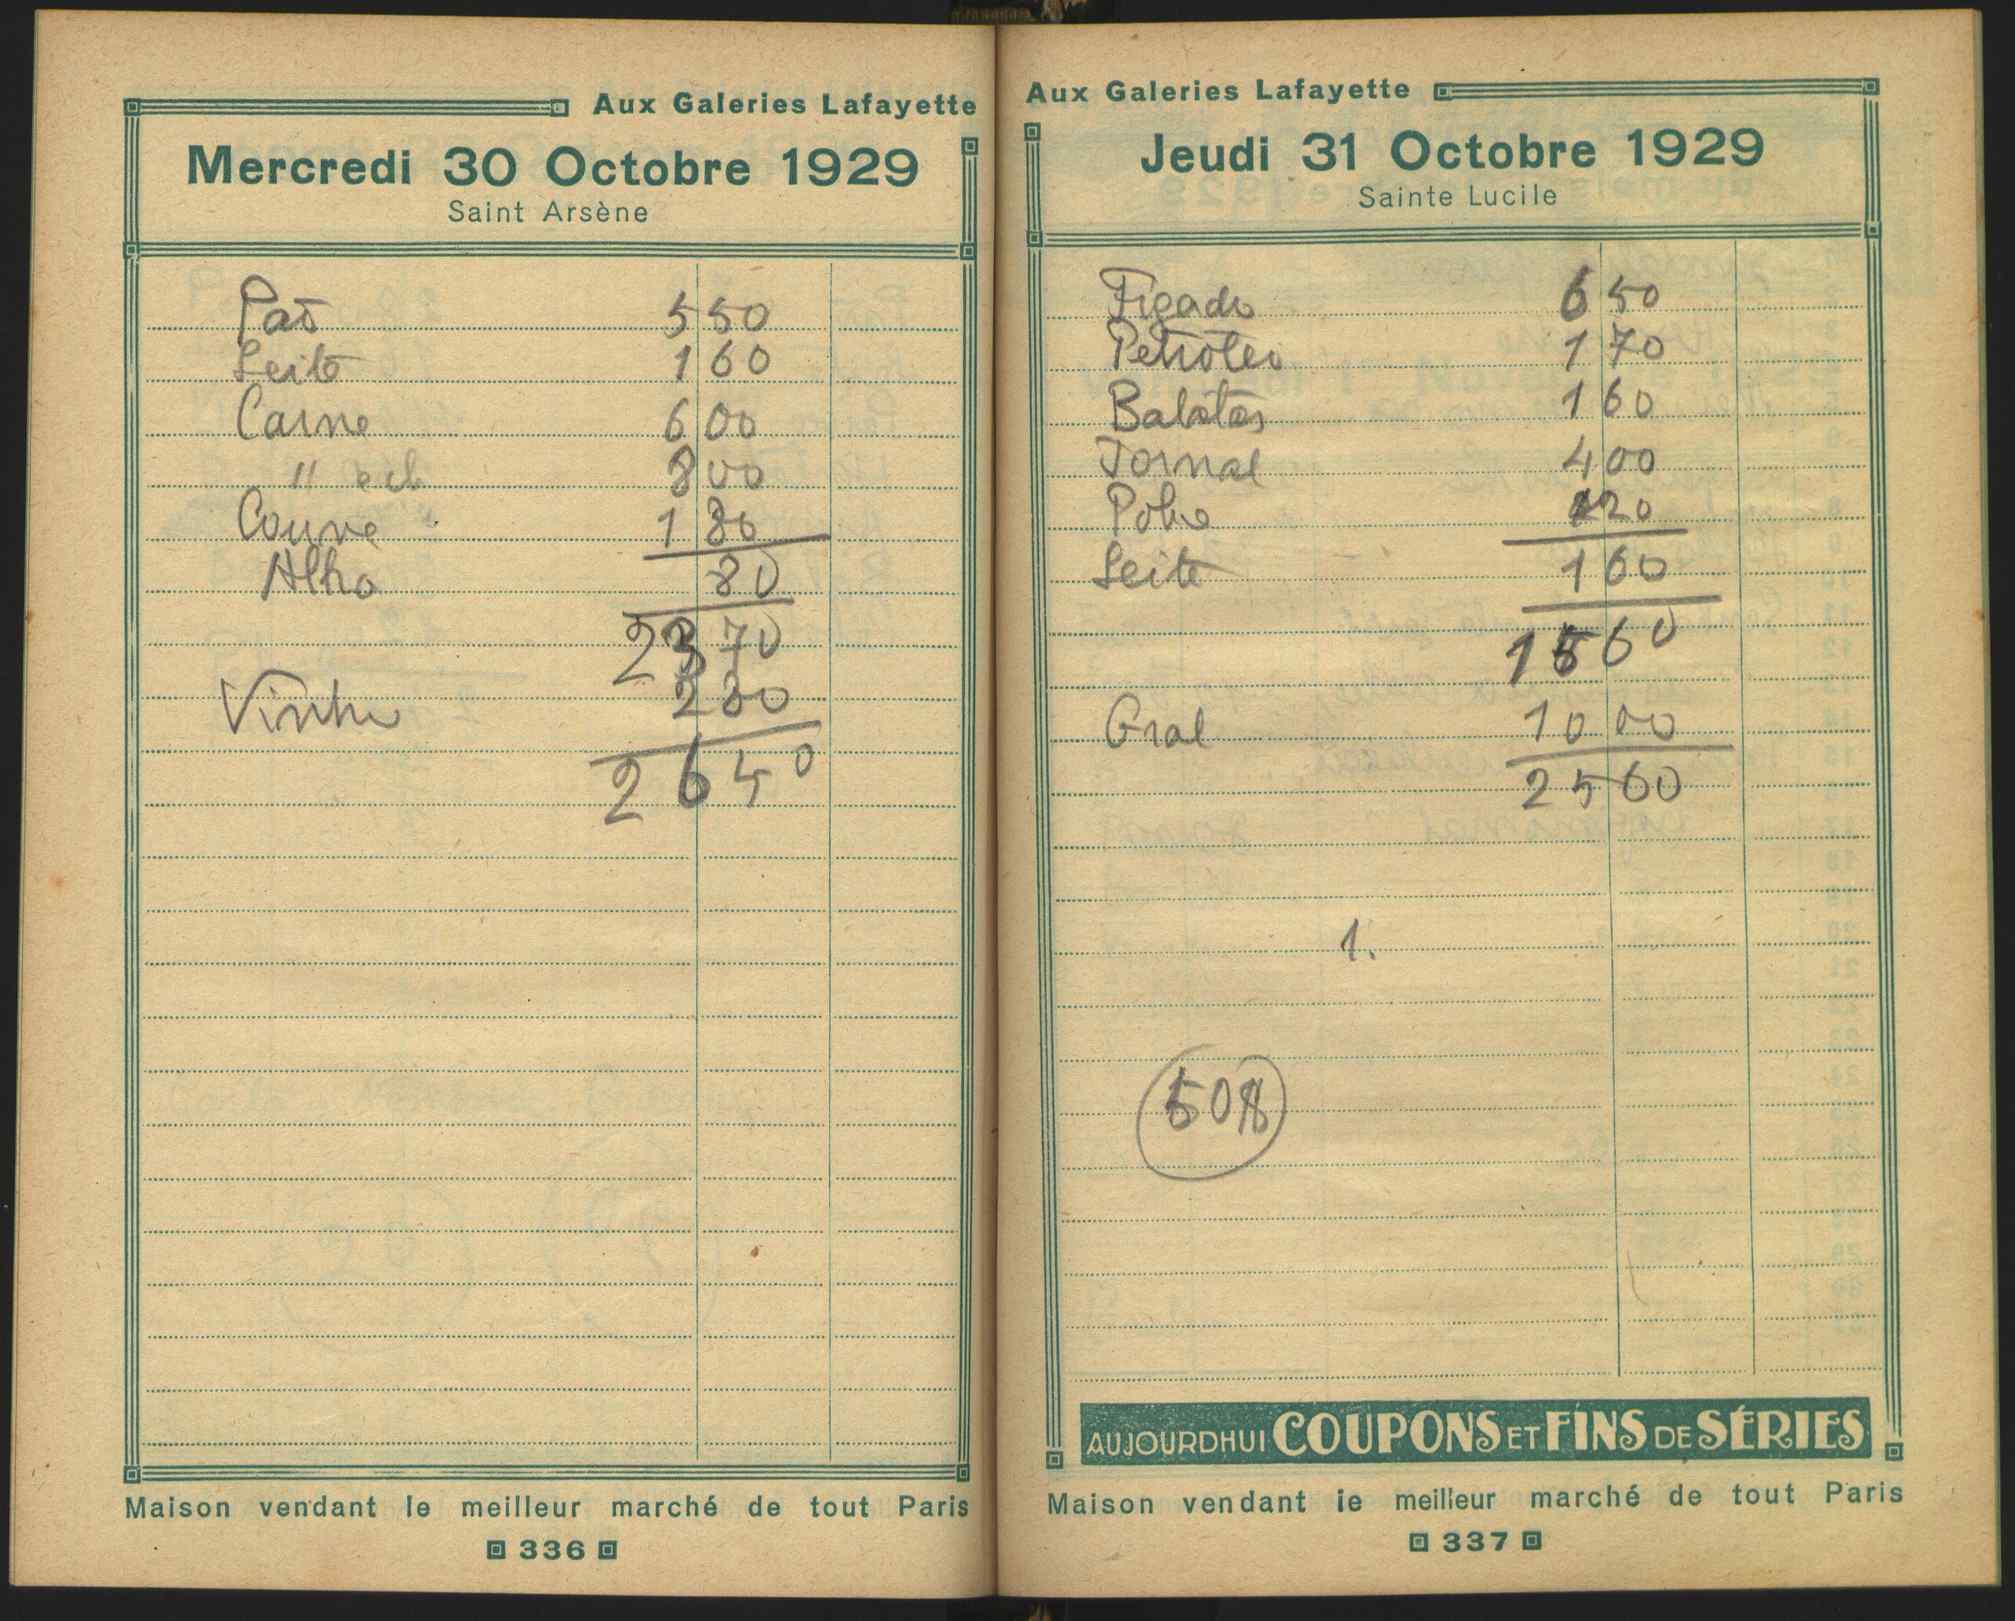 Aux Galeries Lafayette
Mercredi 30 Octobre 1929
Saint Arsène
Paõ 550
Leite 160
Carne 600
" 800
Couve 180
Alho 80
2370
Vinho 280
2650
Maison vendant le meilleur marché de tout Paris
336
Aux Galeries Lafayette
Jeudi 31 Octobre 1929
Sainte Lucile
Figado 650
Petroleo 170
Batatas 160
Jornal 400
120
Leite 160
1560
Gral 1000
2560
1.
AUJOURDHUI COUPONS ET FINS DE SÉRIES
Maison vendant le meilleur marché de tout Paris
337